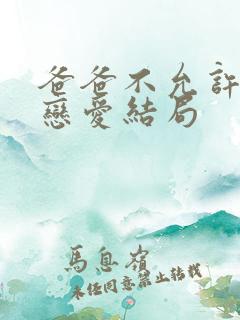 爸爸不允許
戀愛結局
馬息嶺
未經同意禁止轉載